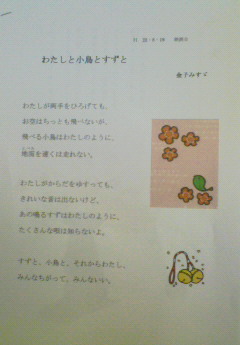 わたしと小鳥とすずと
金子みすゞ
わたしが両手をひろげても、
お空はちっとも飛べないが、
飛べる小鳥はわたしのように、
地面を速くは走れない。
わたしがからだをゆすっても、
きれいな音は出ないけど、
あの鳴るすずはわたしのように、
たくさんな唄は知らないよ。
すずと、小鳥と、それからわたし、
みんなちがって、みんないい。